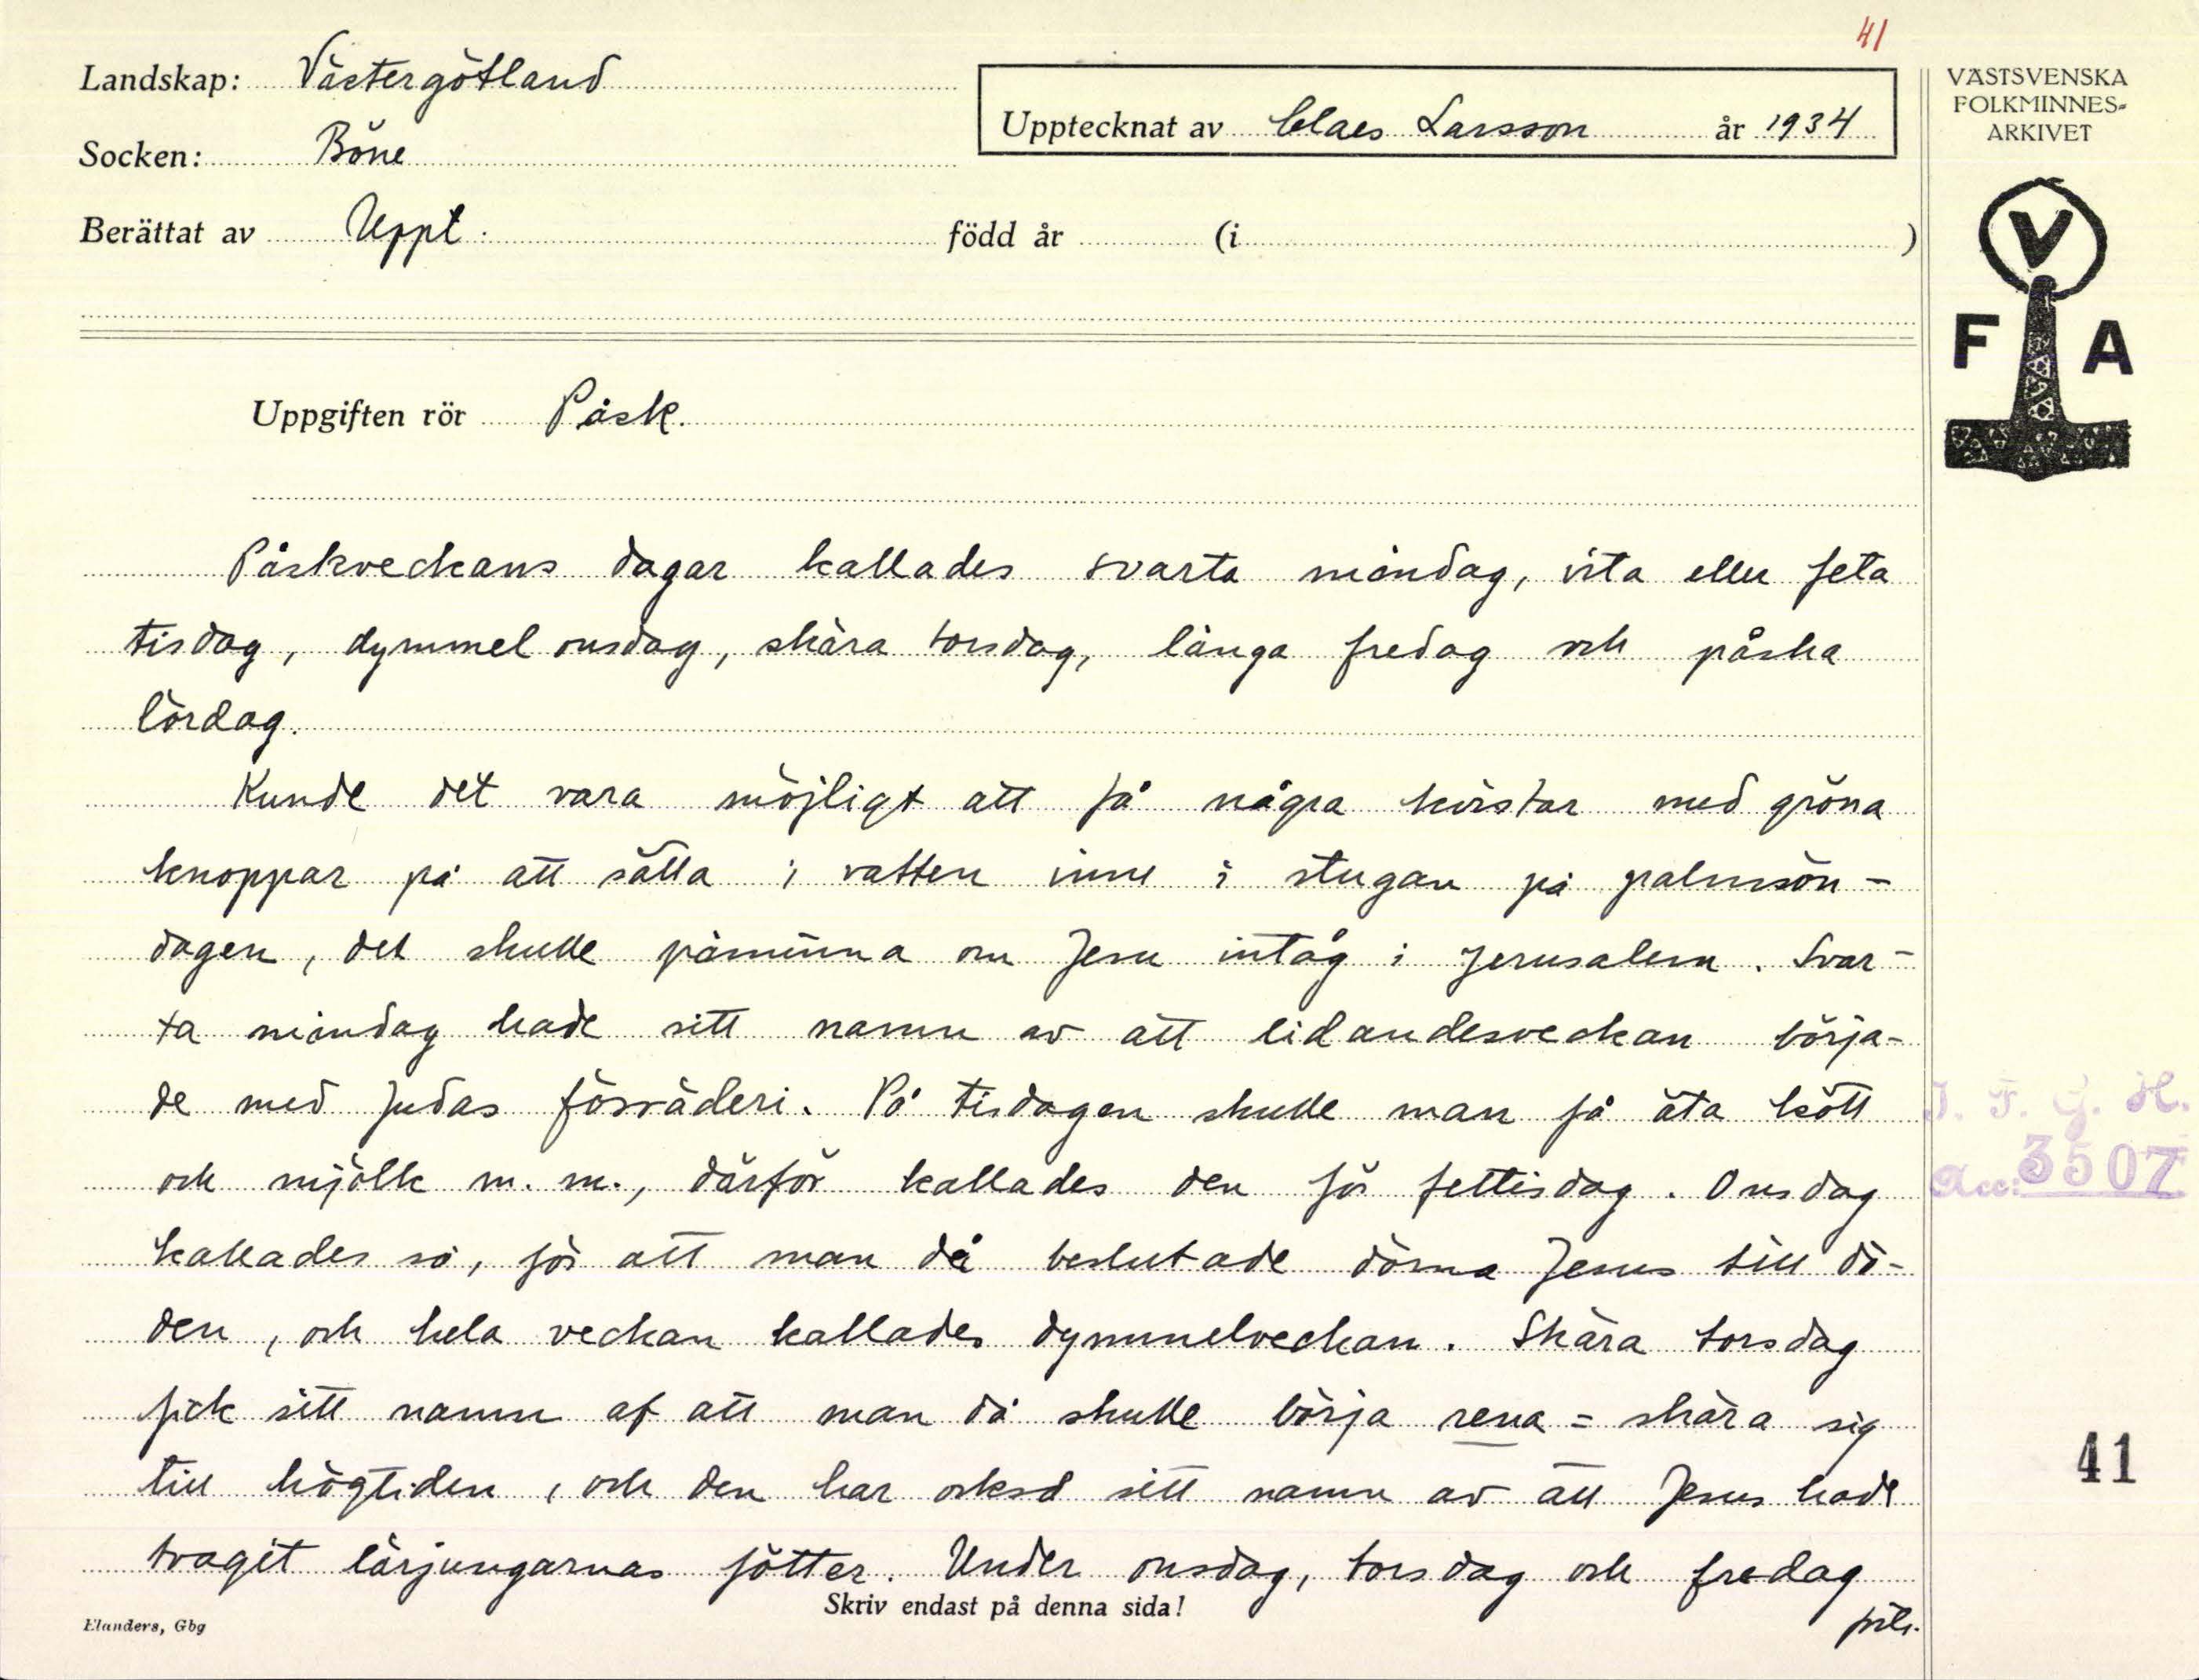 41
Landskap: Västergötland
Socken: Böne
Upptecknat av Claes Larsson år 1934
Berättat av Uppt. född år (i )
VÄSTSVENSKA
FOLKMINNES-
ARKIVET
V
F A
Uppgiften rör Påsk.
Påskveckans dagar kallades svarta måndag, vita eller feta
tisdag, dymmel onsdag, skära torsdag, långa fredag och påska
lördag.
Kunde det vara möjligt att få några kvistar med gröna
knoppar på att sätta i vatten inne i stugan på palmsön-
dagen, det skulle påminna om Jesu intåg i Jerusalem. Svar-
ta måndag hade sitt namn av att lidandesveckan börja-
de med Judas förräderi. På tisdagen skulle man få äta kött
och mjölk m. m., därför kallades den för fettisdag. Onsdag
kallades så, för att man då beslutade döma Jesus till dö-
den, och hela veckan kallades dymmelveckan. Skära torsdag
fick sitt namn af att man då skulle börja rena = skära sig
till högtiden, och den har också sitt namn av att Jesus hade
tvagit lärjungarnas fötter. Under onsdag, torsdag och fredag
I. F. G. H.
Acc: 3507
41
Skriv endast på denna sida!
Elanders, Gbg